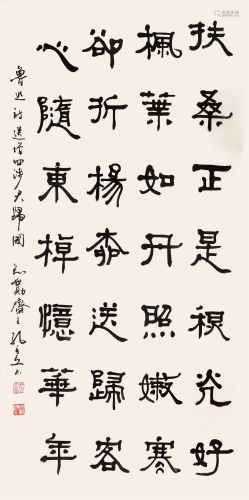 扶桑正是秋光好
楓葉如丹照嫩寒
卻折楊柳送歸客
心隨東棹憶華年
魯迅詩送增田涉君歸國